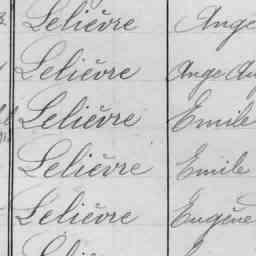 Lelièvre Ange
Lelièvre Ange
Lelièvre Emile
Lelièvre Emile
Lelièvre Eugène